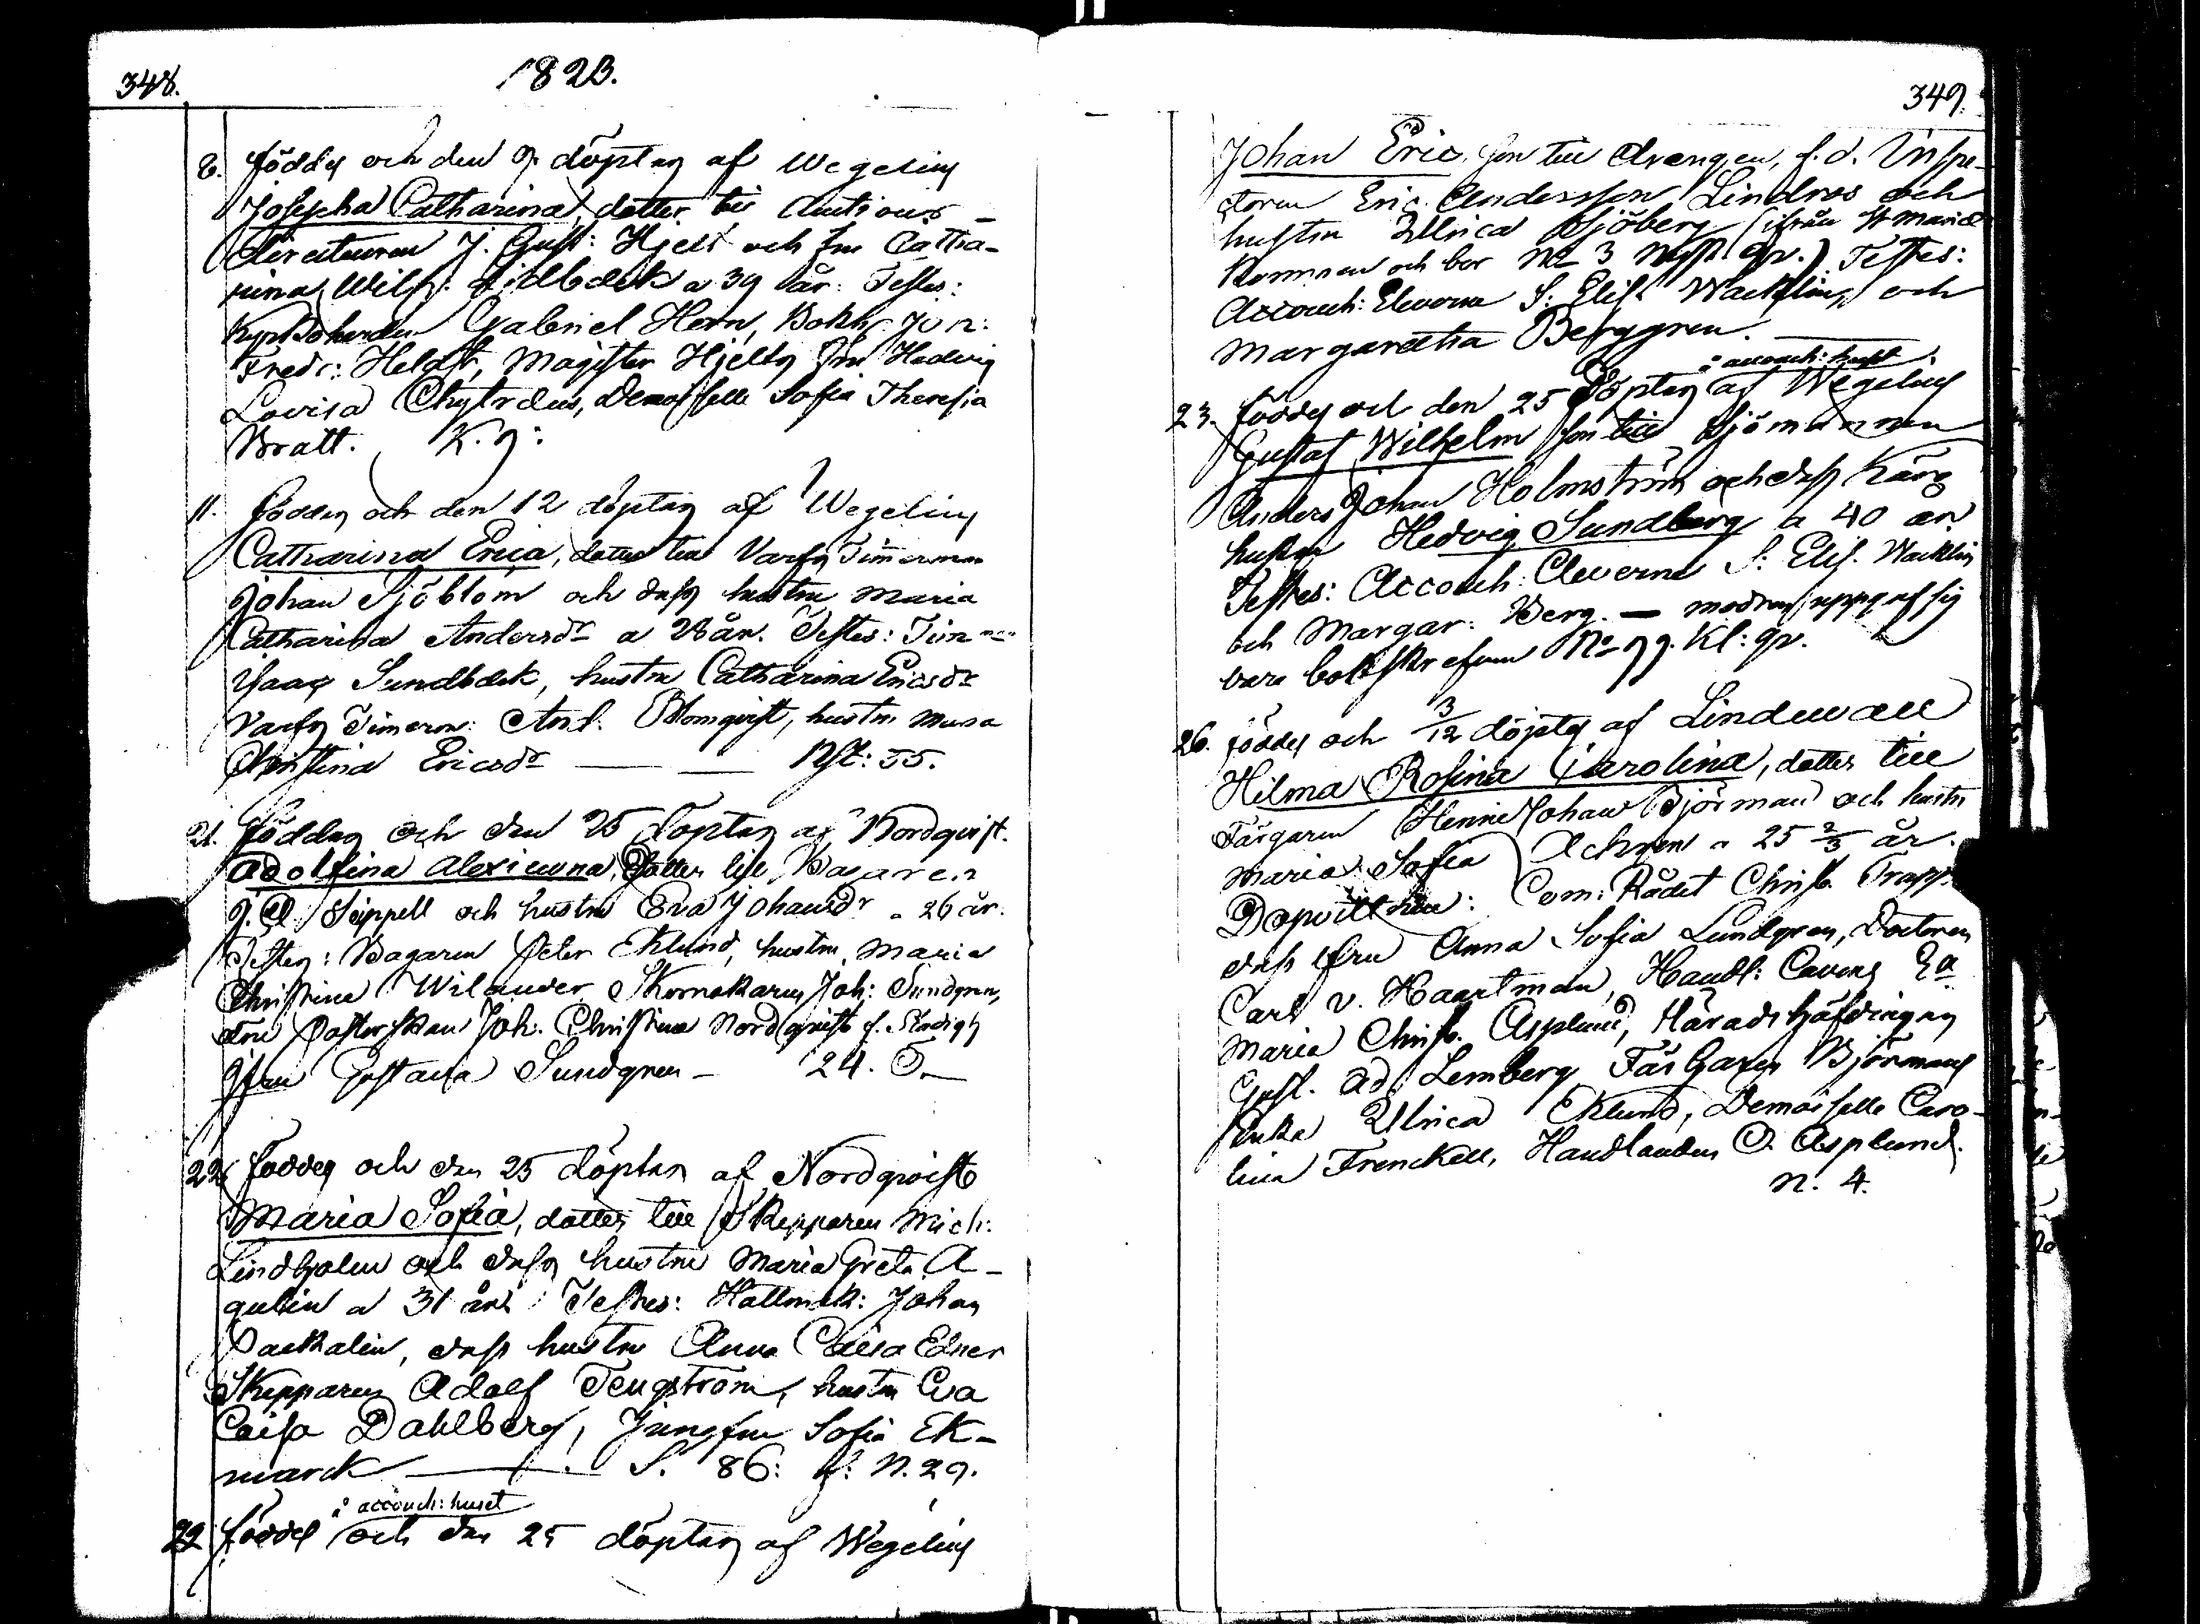 348.
1823.
8. föddes och den 9. döptes af Wegelius
Josepha Catharina, dotter till Auctions-
directeuren J. Gust: Hjelt och fru Catha-
rina Wilh: a 39 år. Testes:
Gabriel Hern, Bokh: Jon:
Fredr: Heldt, Magister Hjelt, fru Hedvig
Lovisa Chytræus, Demoiselle Sofia Theresia
Bratt. K. 9:
11. föddes och den 12 döptes af Wegelius
Catharina Erica, dotter till Varfs Timerman
Johan Sjöblom och dess hustru Maria
Catharina Andersdr a 28 år. Testes: Timmerm.
Isaac Sundbäck, hustru Catharina Ericsdr
Varfs Timerm: And. Blomqvist, hustru Maria
Christina Ericsdr — — Nst: 55.
21. föddes och den 25 döptes af Nordqvist.
Adolfina Alexiewna, dotter till Bagaren
J. A. Seippell och hustru Eva Johansdr a 26 år.
Testes: Bagaren Peter Eklund, hustru Maria
Christina Wilander, Skomakaren Joh: Sundgren,
fru Pastorskan Joh. Christina Nordqvist f.
Jfru Gustava Sundgren — 24. Ö.—
22 föddes och den 25 döptes af Nordqvist
Maria Sofia, dotter till Skepparen Mich:
Lindholm och dess hustru Maria Greta A-
gulin a 31 år. Testes: Hattmak: Johan
Packalén, dess hustru Anna Caisa Edner
Skepparen Adolf Tengström, hustru Eva
Caisa Dahlberg, Jungfru Sofia Ek-
marck — S. 86: N. 29.
i accouch: huset
22 föddes och den 25 döptes af Wegelius
349.
Johan Eric, son till drengen, f. d. Inspe-
ctoren Eric Andersson Lindroos och
hustru Ulrica Sjöberg (ifrån St Mariæ
kommen och bor No 3 Nyst. qv.) Testes:
Accouch: Eleverna S: Elis. Wacklin, och
Margaretha Berggren.
i accouch: huset
23. föddes och den 25 döptes af Wegelius
Gustaf Wilhelm son till Sjömannen
Anders Johan Holmström och dess Kära
hustru Hedvig Sundberg a 40 år
Testes: Accouch: Eleverna S: Elis. Wacklin
och Margar: Berg. — modren uppgaf sig
vara bokskrefven No 79. Kl: qv.
26. föddes och 3/12 döptes af Lindewall
Hilma Rosina Carolina, dotter till
Färgaren Henric Johan Björman och hustru
Maria Sofia Achrén a 25 2/3 år.
Com: Rådet Christ. Trapp
dess fru Anna Sofia Lundgren, Doctoren
Carl v. Haartman, Handl:
Maria Christ. Asplund, Häradshöfdingen
Gust. Ad: Lemberg, Färgaren Björmans
Enka Ulrica Eklund, Demoiselle Caro-
lina Frenckell, Handlanden O. Asplund.
N. 4.